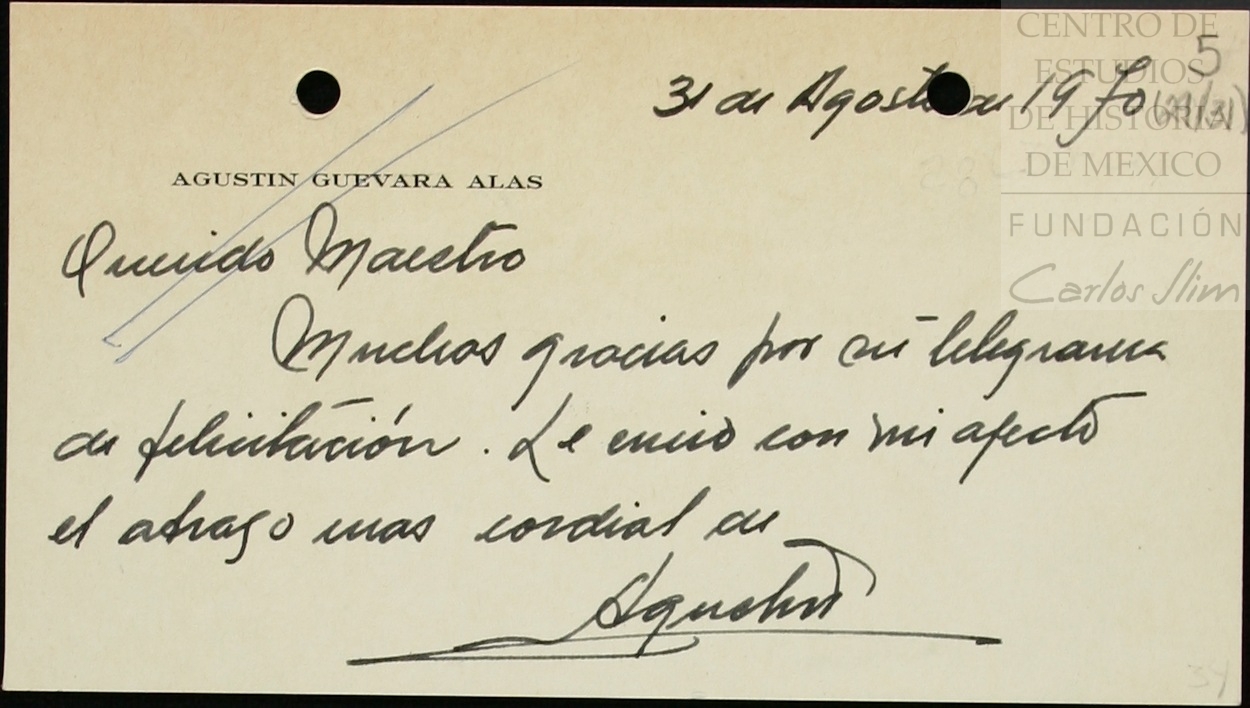 CENTRO DE
ESTUDIOS
DE HISTORIA
DE MEXICO
FUNDACIÓN
Carlos Slim
5
31 de Agosto de 1970
AGUSTIN GUEVARA ALAS
Querido Maestro
Muchas gracias por su telegrama
de felicitación. Le envio con mi afecto
el abrazo mas cordial de
Agustin
34